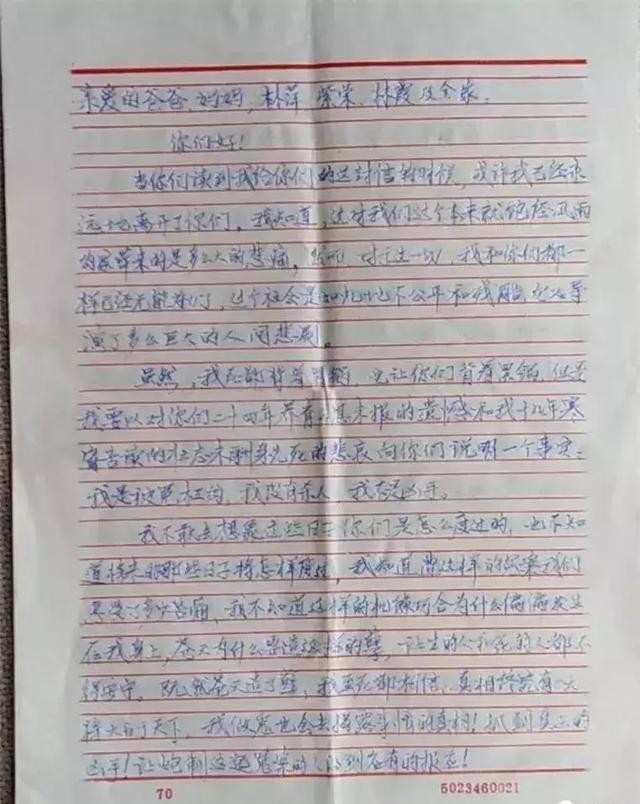 亲爱的爸爸、妈妈、林萍、紫荣、林霞及全家:
你们好!
当你们读到我给你们的这封信的时候,或许我已经永
远地离开了你们。我知道,这对我们这个本来就饱经风雨
的家带来的是多么大的悲痛,然而,对于这一切,我和你们都一
样已经无能为力,这个社会是如此地不公平和残酷,它又导
演了多么巨大的人间悲剧。
虽然,我死都背着黑锅,也让你们背着黑锅,但是
我要以对你们二十四年养育之恩未报的遗憾和我十九年寒
窗苦读的壮志未酬身先死的悲哀向你们说明一个事实:
我是被冤枉的,我没有杀人,我不是凶手。
我不敢去想象这些日子你们是怎么度过的,也不知
道将来的那些日子将怎样度过,我知道遭这样的冤案我们
忍受了多少苦痛,我不知道这样的机缘巧合为什么偏偏发生
在我身上,苍天为什么要造这样的孽,让生的人和死的人都不
得安宁。既然苍天造了孽,我至死都相信,真相终究有一天
将大白于天下,我做鬼也会去揭露事情的真相!抓到真正的
凶手!让炮制这起冤案的人得到应有的报应!
70 5023460021